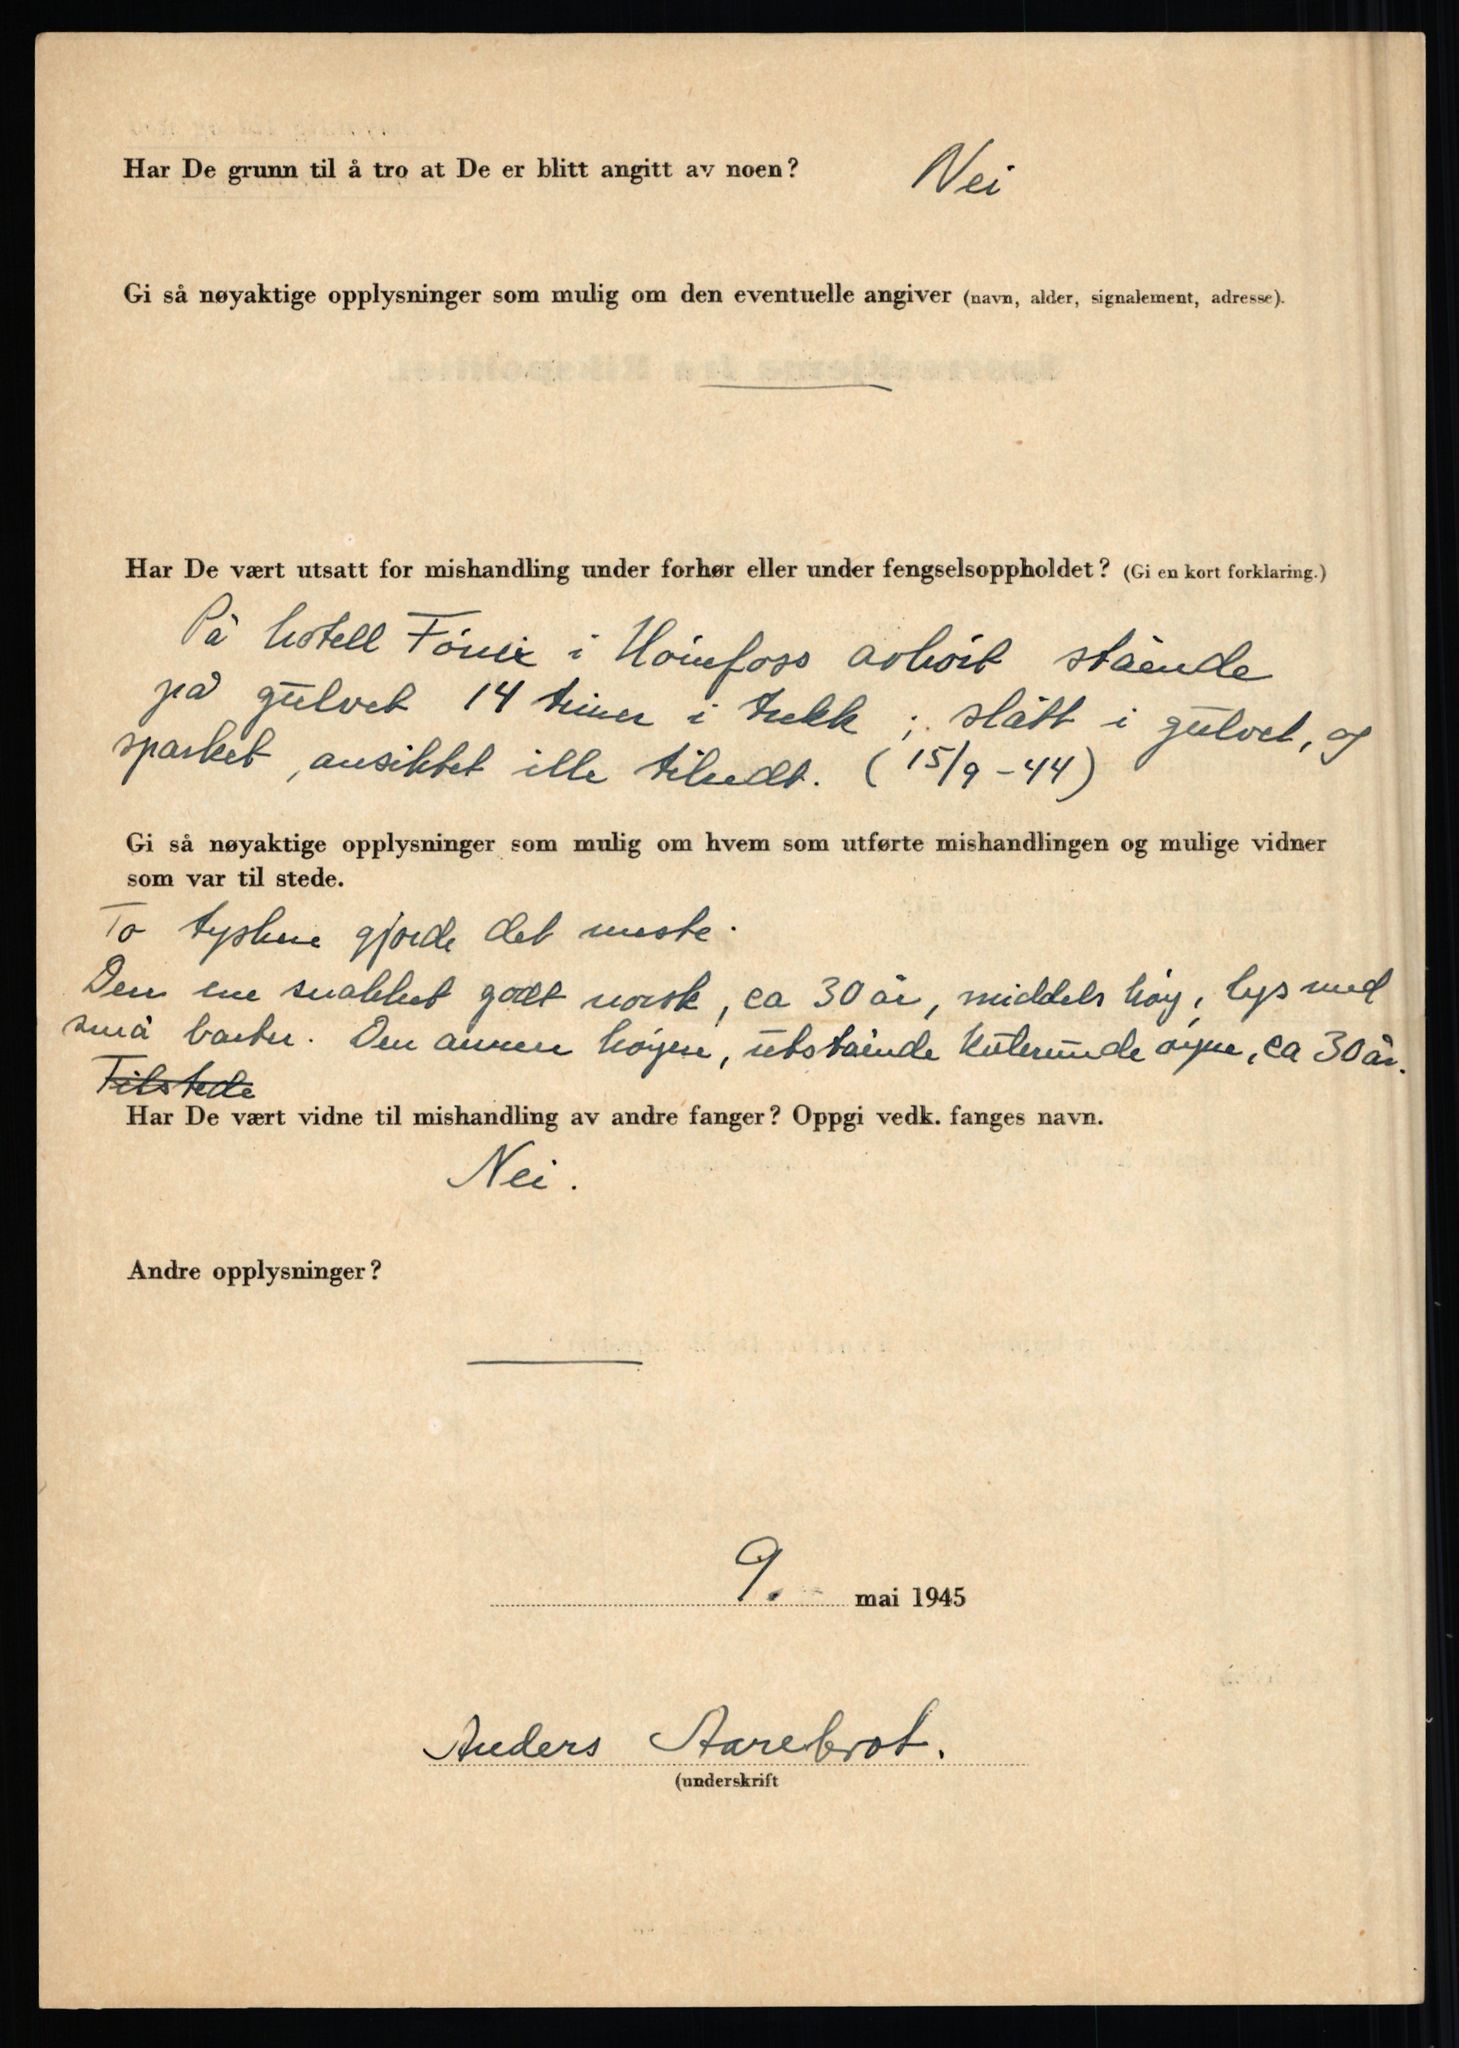 Har De grunn til å tro at De er blitt angitt av noen? Nei
Gi så nøyaktige opplysninger som mulig om den eventuelle angiver (navn, alder, signalement, adresse).
Har De vært utsatt for mishandling under forhør eller under fengselsoppholdet? (Gi en kort forklaring.)
På hotell Fönix i Hönefoss avhört stående
på gulvet 14 timer i trekk ; slått i gulvet, og
sparket, ansiktet ille tilredt. (15/9-44)
Gi så nøyaktige opplysninger som mulig om hvem som utførte mishandlingen og mulige vidner
som var til stede.
To tyskere gjorde det meste.
Den ene snakket godt norsk, ca 30 år, middels høy, lys med
små barter. Den annen høyere, utstående kulerunde øyne, ca 30 år.
Tilstede
Har De vært vidne til mishandling av andre fanger? Oppgi vedk. fanges navn.
Nei.
Andre opplysninger?
9. mai 1945
Anders Aarebrot.
(underskrift